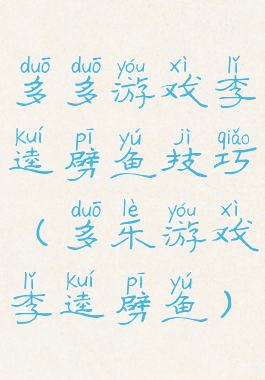 duō duō yóu xì lǐ
多多游戏李
kuí pī yú jì qiǎo
逵劈鱼技巧
duō lè yóu xì
(多乐游戏
lǐ kuí pī yú
李逵劈鱼)